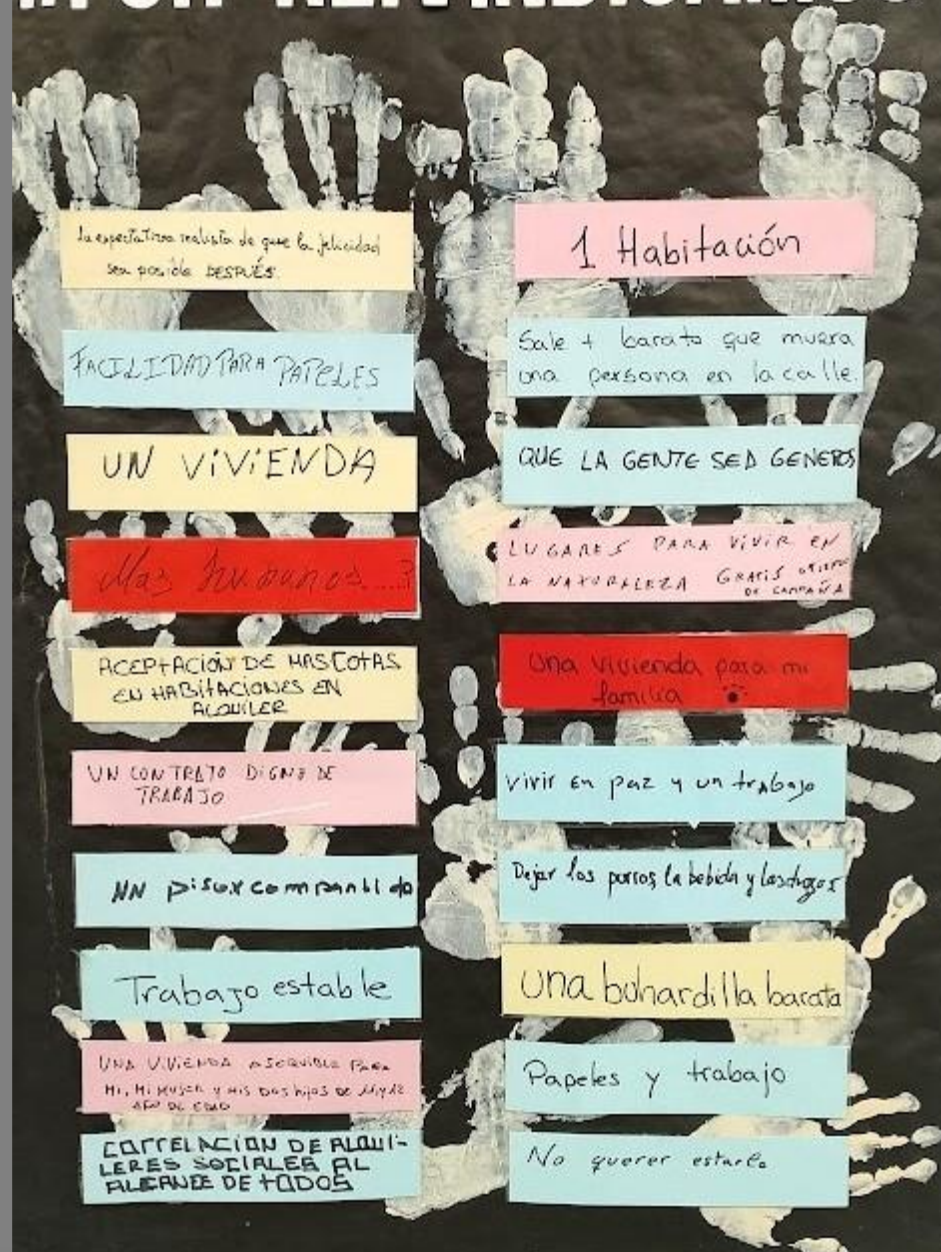 REIVINDICAMOS
La expectativa realista de que la felicidad
sea posible DESPUÉS
FACILIDAD PARA PAPELES
UN ViViENDA
Mas humanos....?
ACEPTACIÓN DE MASCOTAS
EN HABITACIONES EN
ALQUILER
UN CONTRATO DIGNO DE
TRABAJO
UN pisox compantido
Trabajo estable
UNA ViViENDA ASEQUIBLE PARA
Mi, Mi MUJER y Mis DOS hijos DE 11 y 12
AÑO DE EDAD
CORRELACION DE ALQUI-
LERES SOCIALES AL
ALCANCE DE TODOS
1 Habitación
Sale + barato que muera
una persona en la calle.
QUE LA GENTE SEA GENEROS
LUGARES PARA ViViR EN
LA NATURALEZA GRATiS
DE CAMPAÑA
Una vivienda para mi
familia
Vivir en paz y un trabajo
Dejar los porros, la bebida y las drogas
Una buhardilla barata
Papeles y trabajo
No querer estarlo